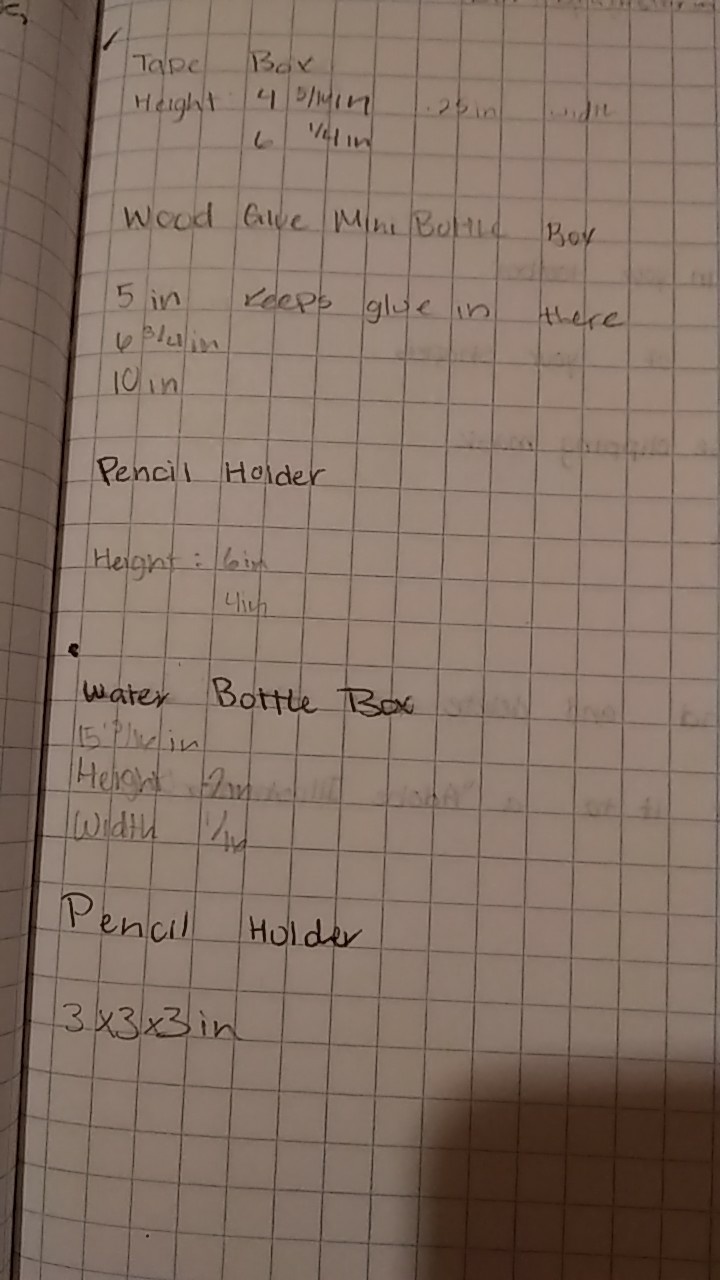 Tape Box
Height 4 in .25in
6 1/4 in
Wood Glue Mini Bottle Box
5 in keeps glue in there
6 3/4 in
10 in
Pencil Holder
Height: 6in
4in
Water Bottle Box
15 in
Height
Width
Pencil Holder
3x3x3 in